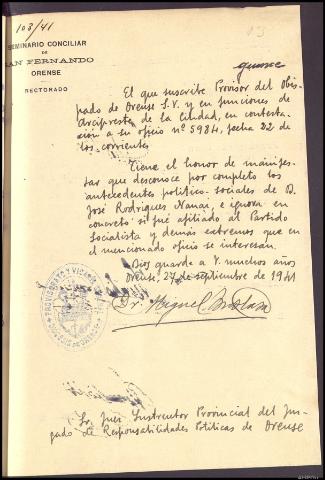 103/41
13
SEMINARIO CONCILIAR
DE
SAN FERNANDO
ORENSE
RECTORADO
quince
El que suscribe Provisor del Obis-
pado de Orense S.V. y en funciones de
Arcipreste de la Ciudad, en contesta-
ción a su oficio nº 5984, fecha 22 de
los corrientes
Tiene el honor de manifes-
tar que desconoce por completo los
antecedentes politico-sociales de D.
José Rodrigues, e ignora en
concreto si fué afiliado al Partido
Socialista y demás extremos que en
el mencionado oficio se interesan.
Dios guarde a V. muchos años
Orense, 27 de septiembre de 1941
Dr. Miguel
PROVISORATO Y VICARIA
Sr. Juez Instructor Provincial del Juz-
gado de Responsabilidades Politicas de Orense